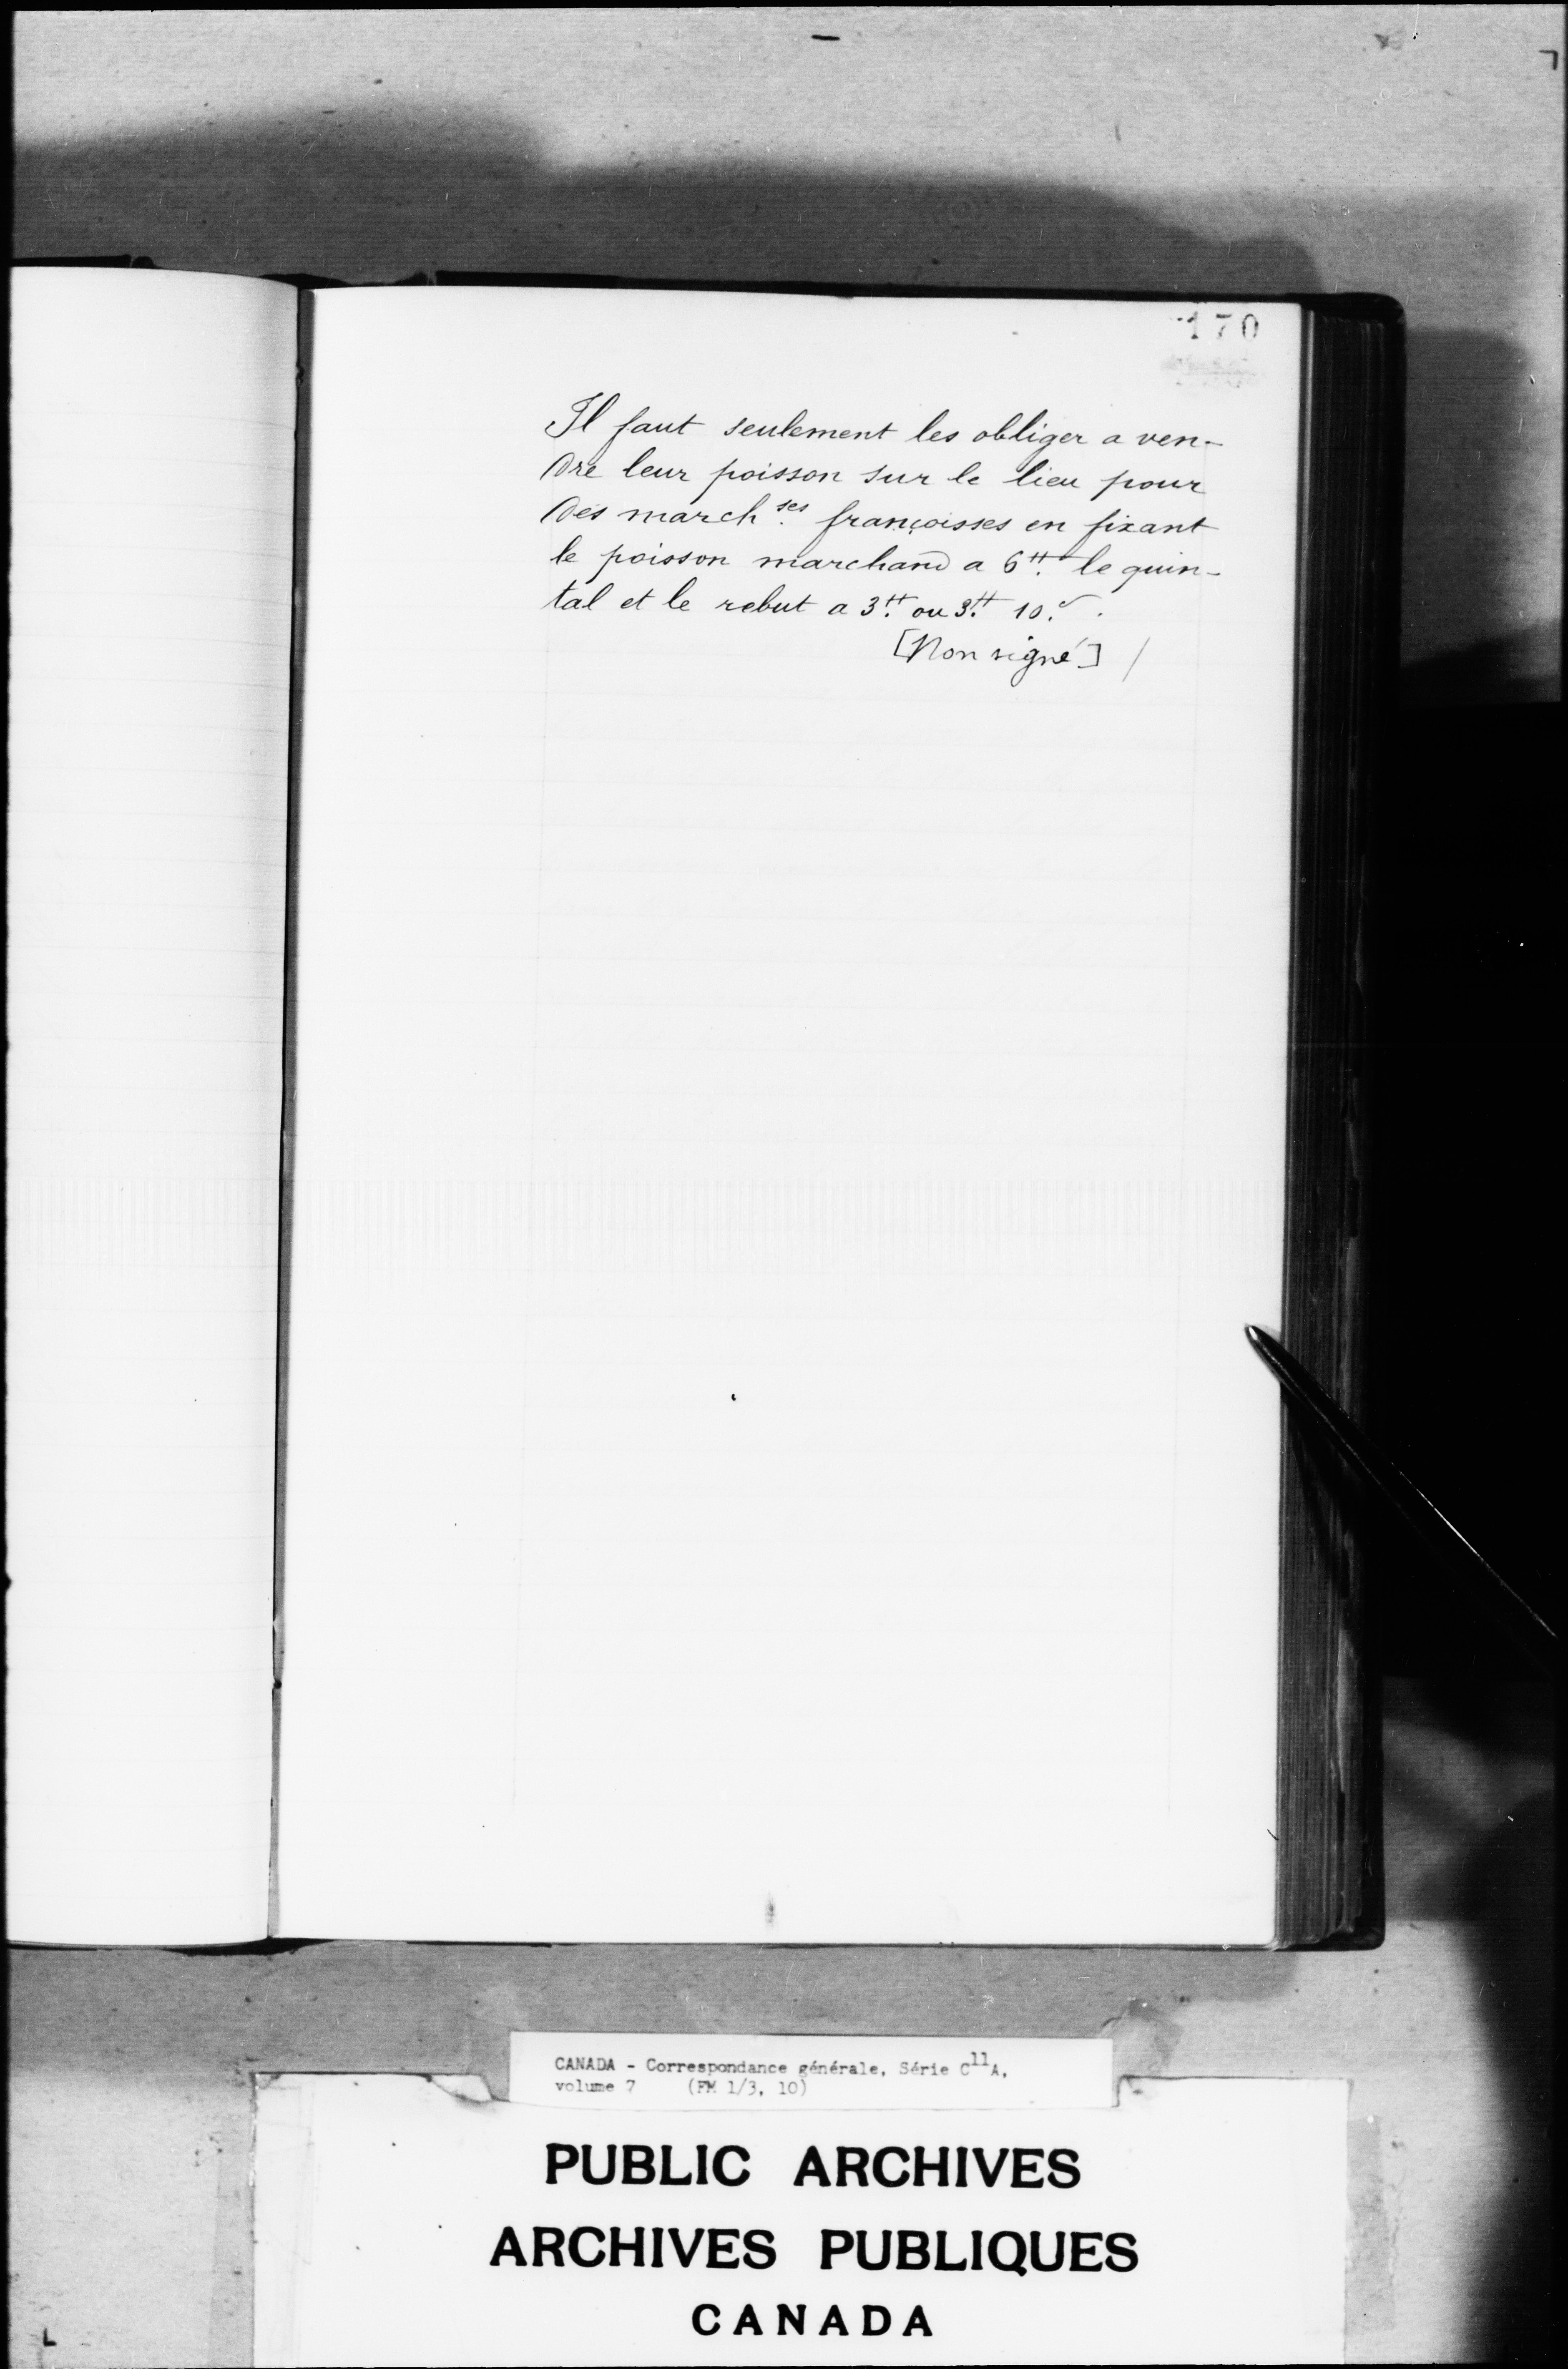 170
Il faut seulement les obliger a ven-
dre leur poisson sur le lieu pour
des march.ses françoisses en fixant
le poisson marchand a 6.tt le quin-
tal et le rebut a 3.tt ou 3.tt 10.s.
[Non signé] /
CANADA - Correspondance générale, Série C11A,
volume 7 (FM 1/3, 10)
PUBLIC ARCHIVES
ARCHIVES PUBLIQUES
CANADA